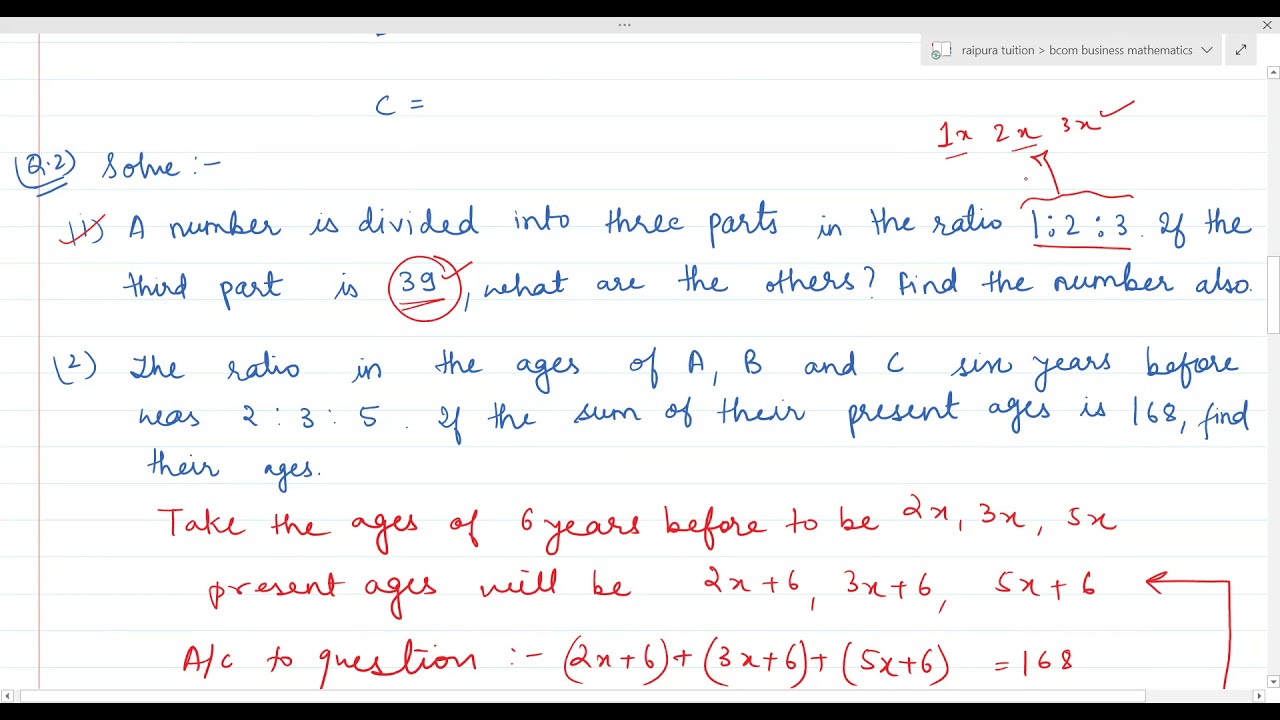 raipura tuition > bcom business mathematics
C =
1x 2x 3x
(Q.2) Solve :-
(1) A number is divided into three parts in the ratio 1:2:3. If the
third part is 39, what are the others? Find the number also.
(2) The ratio in the ages of A, B and C six years before
was 2 : 3 : 5. If the sum of their present ages is 168, find
their ages.
Take the ages of 6 years before to be 2x, 3x, 5x
present ages will be 2x+6, 3x+6, 5x+6
A/c to question :- (2x+6)+(3x+6)+(5x+6) =168